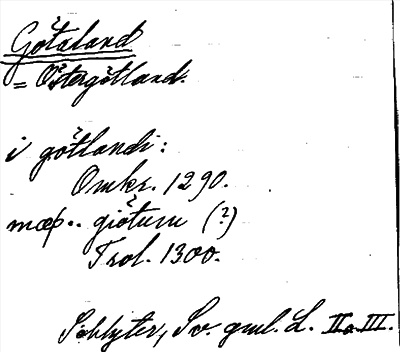 Götaland
= Östergötland.
i götlandi:
Omkr. 1290.
mæþ.. giötum (?)
Trol. 1300.
Schlyter, Sv. gml. L. II o. III.